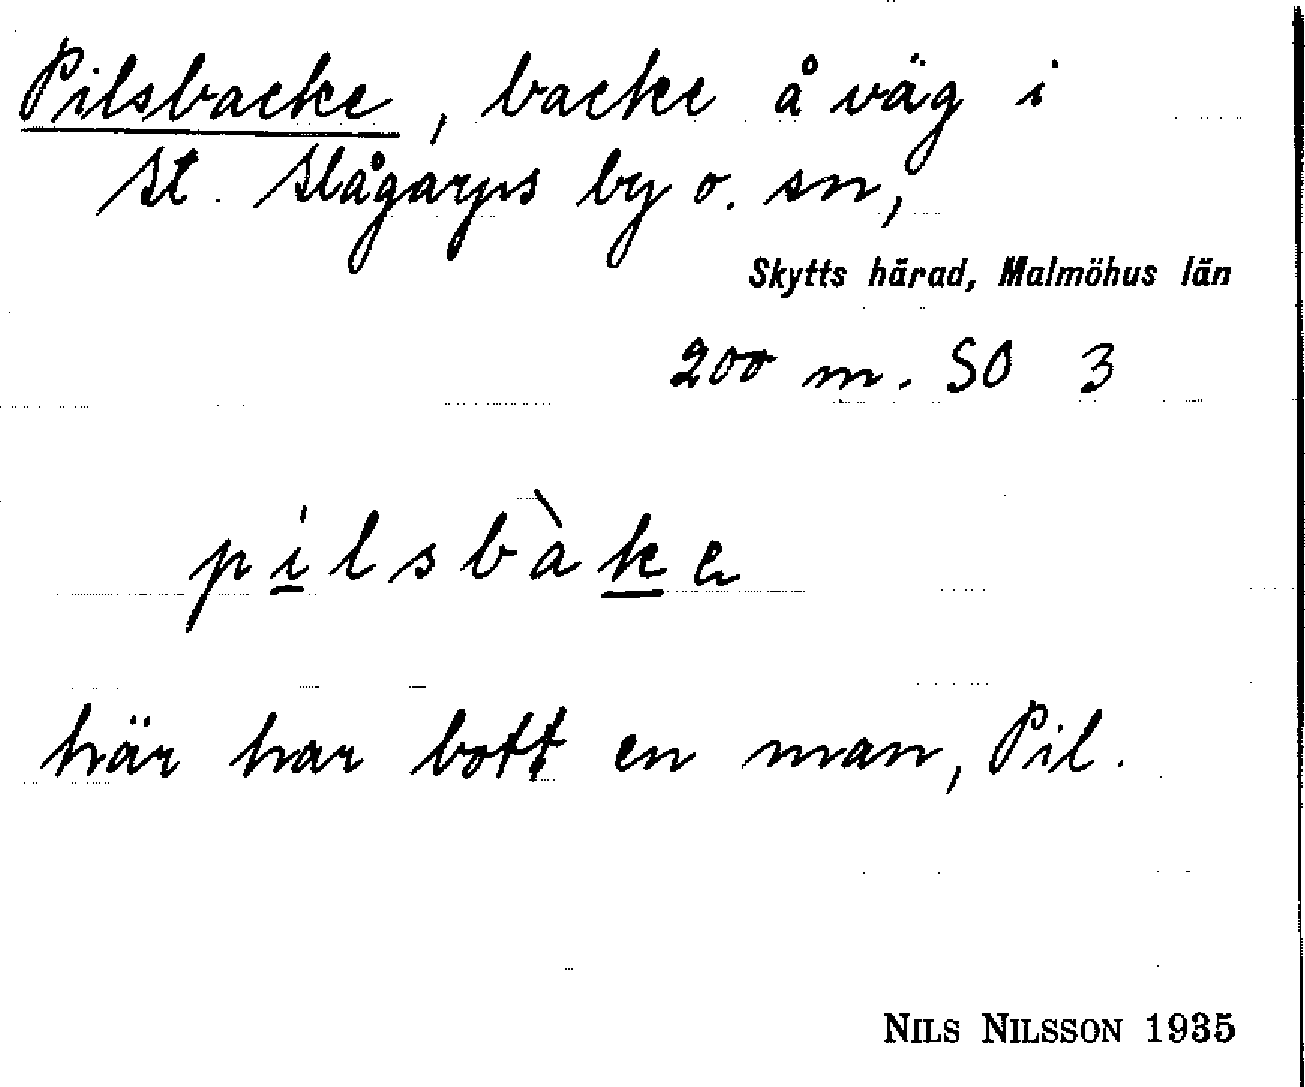 Pilsbacke, backe å väg i
St. Slågarps by o. sn,
Skytts härad, Malmöhus län
200 m. SO 3
pilsbàke
här har bott en man, Pil.
NILS NILSSON 1935